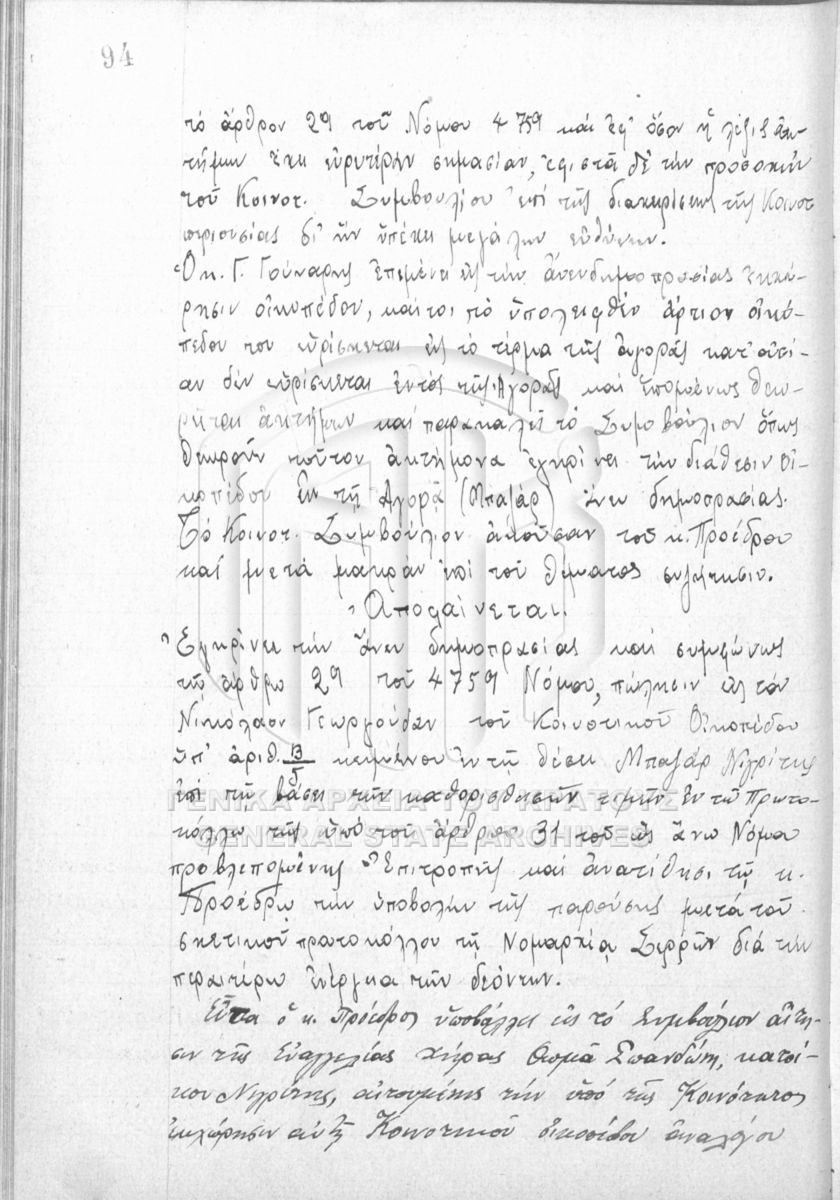 94
τό ἄρθρον 29 τοῦ Νόμου 4759 καί ἐφ' ὅσον ἡ λέξις ἀκ-
τήμων ἔχει εὐρυτέραν σημασίαν, ἐφιστᾶ δέ τήν προσοχήν
τοῦ Κοινοτ. Συμβουλίου ἐπί τῆς διαχειρίσεως τῆς Κοινοτ
περιουσίας δι' ἥν ὑπέχει μεγάλων εὐθύνων.
Ὁ κ. Γ. Γούναρης ἐπιμένει εἰς τήν ἄνευ δημοπρασίας ἐκχώ-
ρησιν οἰκοπέδου, καίτοι τό ὑπολειφθέν ἄρτιον οἰκό-
πεδον του εὑρίσκεται εἰς τό τέρμα τῆς ἀγορᾶς κατ' οὐσί-
αν δέν εὑρίσκεται ἐντός τῆς Ἀγορᾶς καί ἑπομένως θεω-
ρεῖται ἀκτήμων καί παρακαλεῖ τό Συμβούλιον ὅπως
θεωροῦν τοῦτον ἀκτήμονα ἐγκρίνει τήν διάθεσιν οἰ-
κοπέδου ἐν τῇ Ἀγορᾷ (Μπαζάρ) ἄνευ δημοπρασίας.
Τό Κοινοτ. Συμβούλιον ἀκοῦσαν τοῦ κ. Προέδρου
καί μετά μακράν ἐπί τοῦ θέματος συζήτησιν.
Ἀποφαίνεται.
Ἐγκρίνει τήν ἄνευ δημοπρασίας καί συμφώνως
τῷ ἄρθρῳ 29 τοῦ 4759 Νόμου, πώλησιν εἰς τόν
Νικόλαον Γεωργούδαν τοῦ Κοινοτικοῦ Οἰκοπέδου
ὑπ' ἀριθ. 13/5 κειμένου ἐν τῇ θέσει Μπαζάρ Νιγρίτης
ἐπί τῇ βάσει τῶν καθορισθεισῶν τιμῶν ἐν τῷ Πρωτο-
κόλλῳ τῆς ὑπό τοῦ ἄρθρου 31 τοῦ ὡς ἄνω Νόμου
προβλεπομένης Ἐπιτροπῆς καί ἀνατίθησι τῷ κ.
Προέδρῳ τήν ὑποβολήν τῆς παρούσης μετά τοῦ
σχετικοῦ πρωτοκόλλου τῇ Νομαρχίᾳ Σερρῶν διά τήν
περαιτέρω ἐνέργεια τῶν δεόντων.
Εἶτα ὁ κ. Πρόεδρος ὑποβάλλει εἰς τό Συμβούλιον αἴτη-
σιν τῆς Εὐαγγελίας χήρας Θωμᾶ Σπανδώνη, κατοί-
κου Νιγρίτης, αἰτουμένης τήν ὑπό τῆς Κοινότητος
ἐκχώρησιν αὐτῇ Κοινοτικοῦ οἰκοπέδου ἀναλόγου
ΓΕΝΙΚΑ ΑΡΧΕΙΑ ΤΟΥ ΚΡΑΤΟΥΣ
GENERAL STATE ARCHIVES